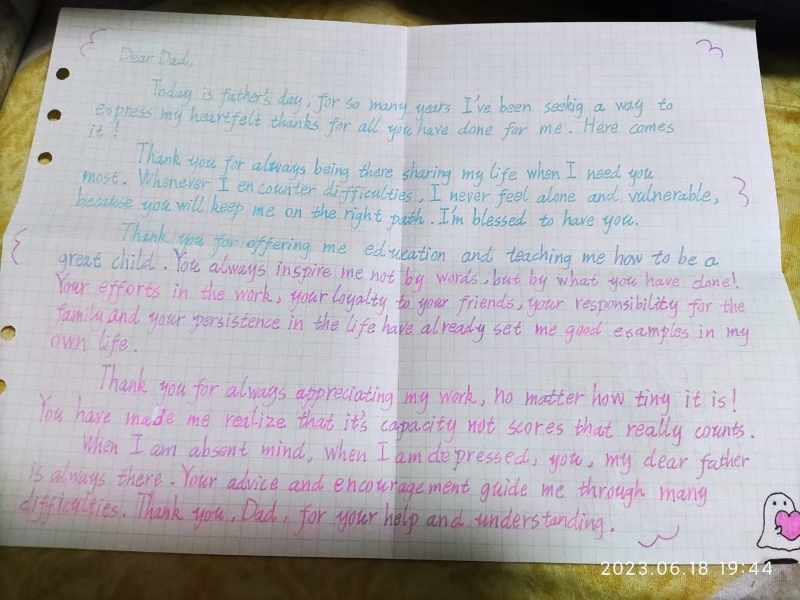 Dear Dad,
Today is father's day, for so many years I've been seekig a way to
express my heartfelt thanks for all you have done for me. Here comes
it!
Thank you for always being there sharing my life when I need you
most. Whenever I encounter difficulties, I never feel alone and vulnerable,
because you will keep me on the right path. I'm blessed to have you.
Thank you for offering me education and teaching me how to be a
great child. You always inspire me not by words, but by what you have done!
Your efforts in the work, your loyalty to your friends, your responsibility for the
family and your persistence in the life have already set me good examples in my
own life.
Thank you for always appreciating my work, no matter how tiny it is!
You have made me realize that it's capacity not scores that really counts.
When I am absent mind, when I am depressed, you, my dear father
is always there. Your advice and encouragement guide me through many
difficulties. Thank you, Dad, for your help and understanding.
2023.06.18 19:44